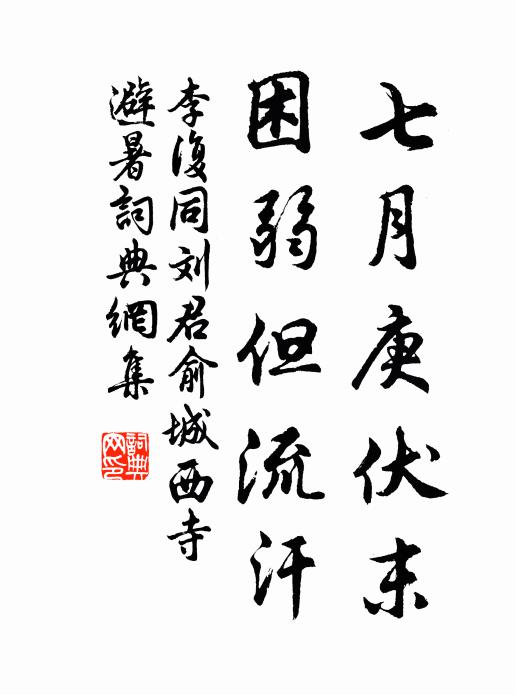 七月庚伏末
困弱但流汗
李復同刘君俞城西寺
避暑詞典網集
詞典网印